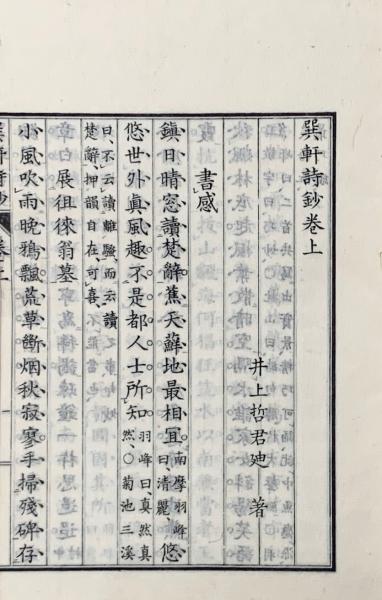 巽軒詩鈔卷上
井上哲君廸 著
書感
鎮日晴窓讀楚辭蕉天蘇地最相宜南摩羽峰曰清麗悠
悠世外眞風趣不是都人士所知羽峰曰真然真然〇菊池三溪
曰不云讀離騷而云讀楚辭押韻自在可喜
展徂徠翁墓
小風吹雨晩鴉飄荒草斷烟秋寂寥手掃殘碑存